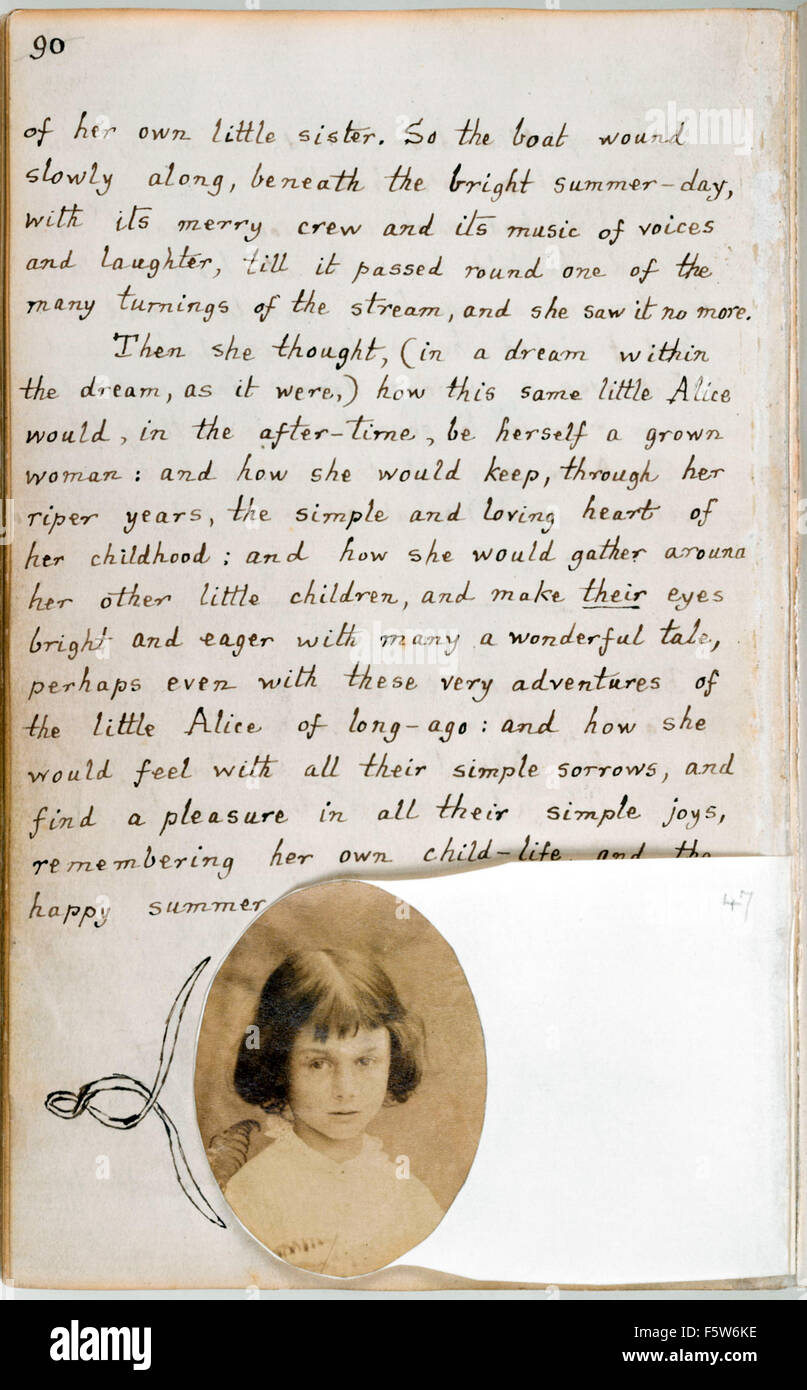 90
of her own little sister. So the boat wound
slowly along, beneath the bright summer-day,
with its merry crew and its music of voices
and laughter, till it passed round one of the
many turnings of the stream, and she saw it no more.
Then she thought, (in a dream within
the dream, as it were,) how this same little Alice
would, in the after-time, be herself a grown
woman: and how she would keep, through her
riper years, the simple and loving heart of
her childhood: and how she would gather around
her other little children, and make their eyes
bright and eager with many a wonderful tale,
perhaps even with these very adventures of
the little Alice of long-ago: and how she
would feel with all their simple sorrows, and
find a pleasure in all their simple joys,
remembering her own child-life, and the
happy summer
47
alamy
Image ID: F5W6KE
www.alamy.com